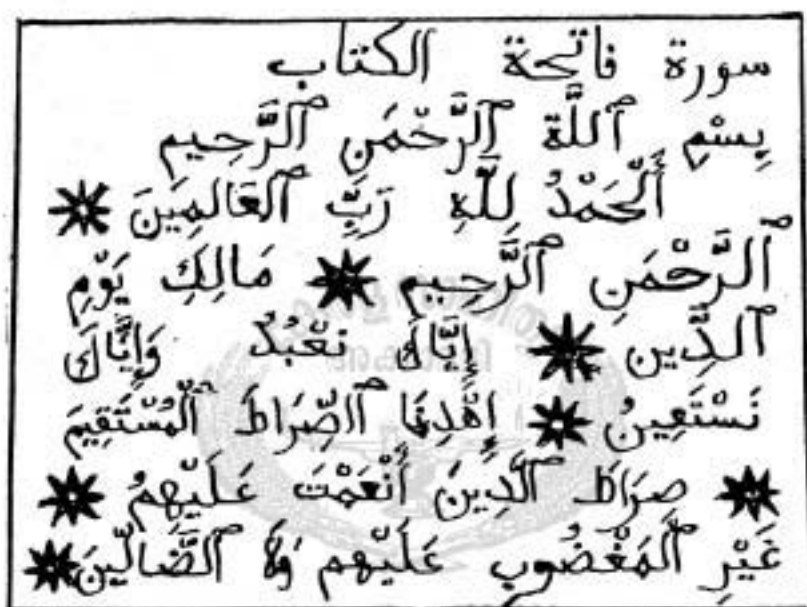 سورة فاتحة الكتاب
بِسْمِ ٱللَّهِ ٱلرَّحْمَنِ ٱلرَّحِيمِ
أَلْحَمْدُ لِلَّهِ رَبِّ ٱلْعَالَمِينَ
ٱلرَّحْمَنِ ٱلرَّحِيمِ مَالِكِ يَوْمِ
ٱلدِّينِ إِيَّاكَ نَعْبُدُ وَإِيَّاكَ
نَسْتَعِينُ إِهْدِنَا ٱلصِّرَاطَ ٱلْمُسْتَقِيمَ
صِرَاطَ ٱلَّذِينَ أَنْعَمْتَ عَلَيْهِمْ
غَيْرِ ٱلْمَغْضُوبِ عَلَيْهِم وَلَا ٱلضَّالِّينَ